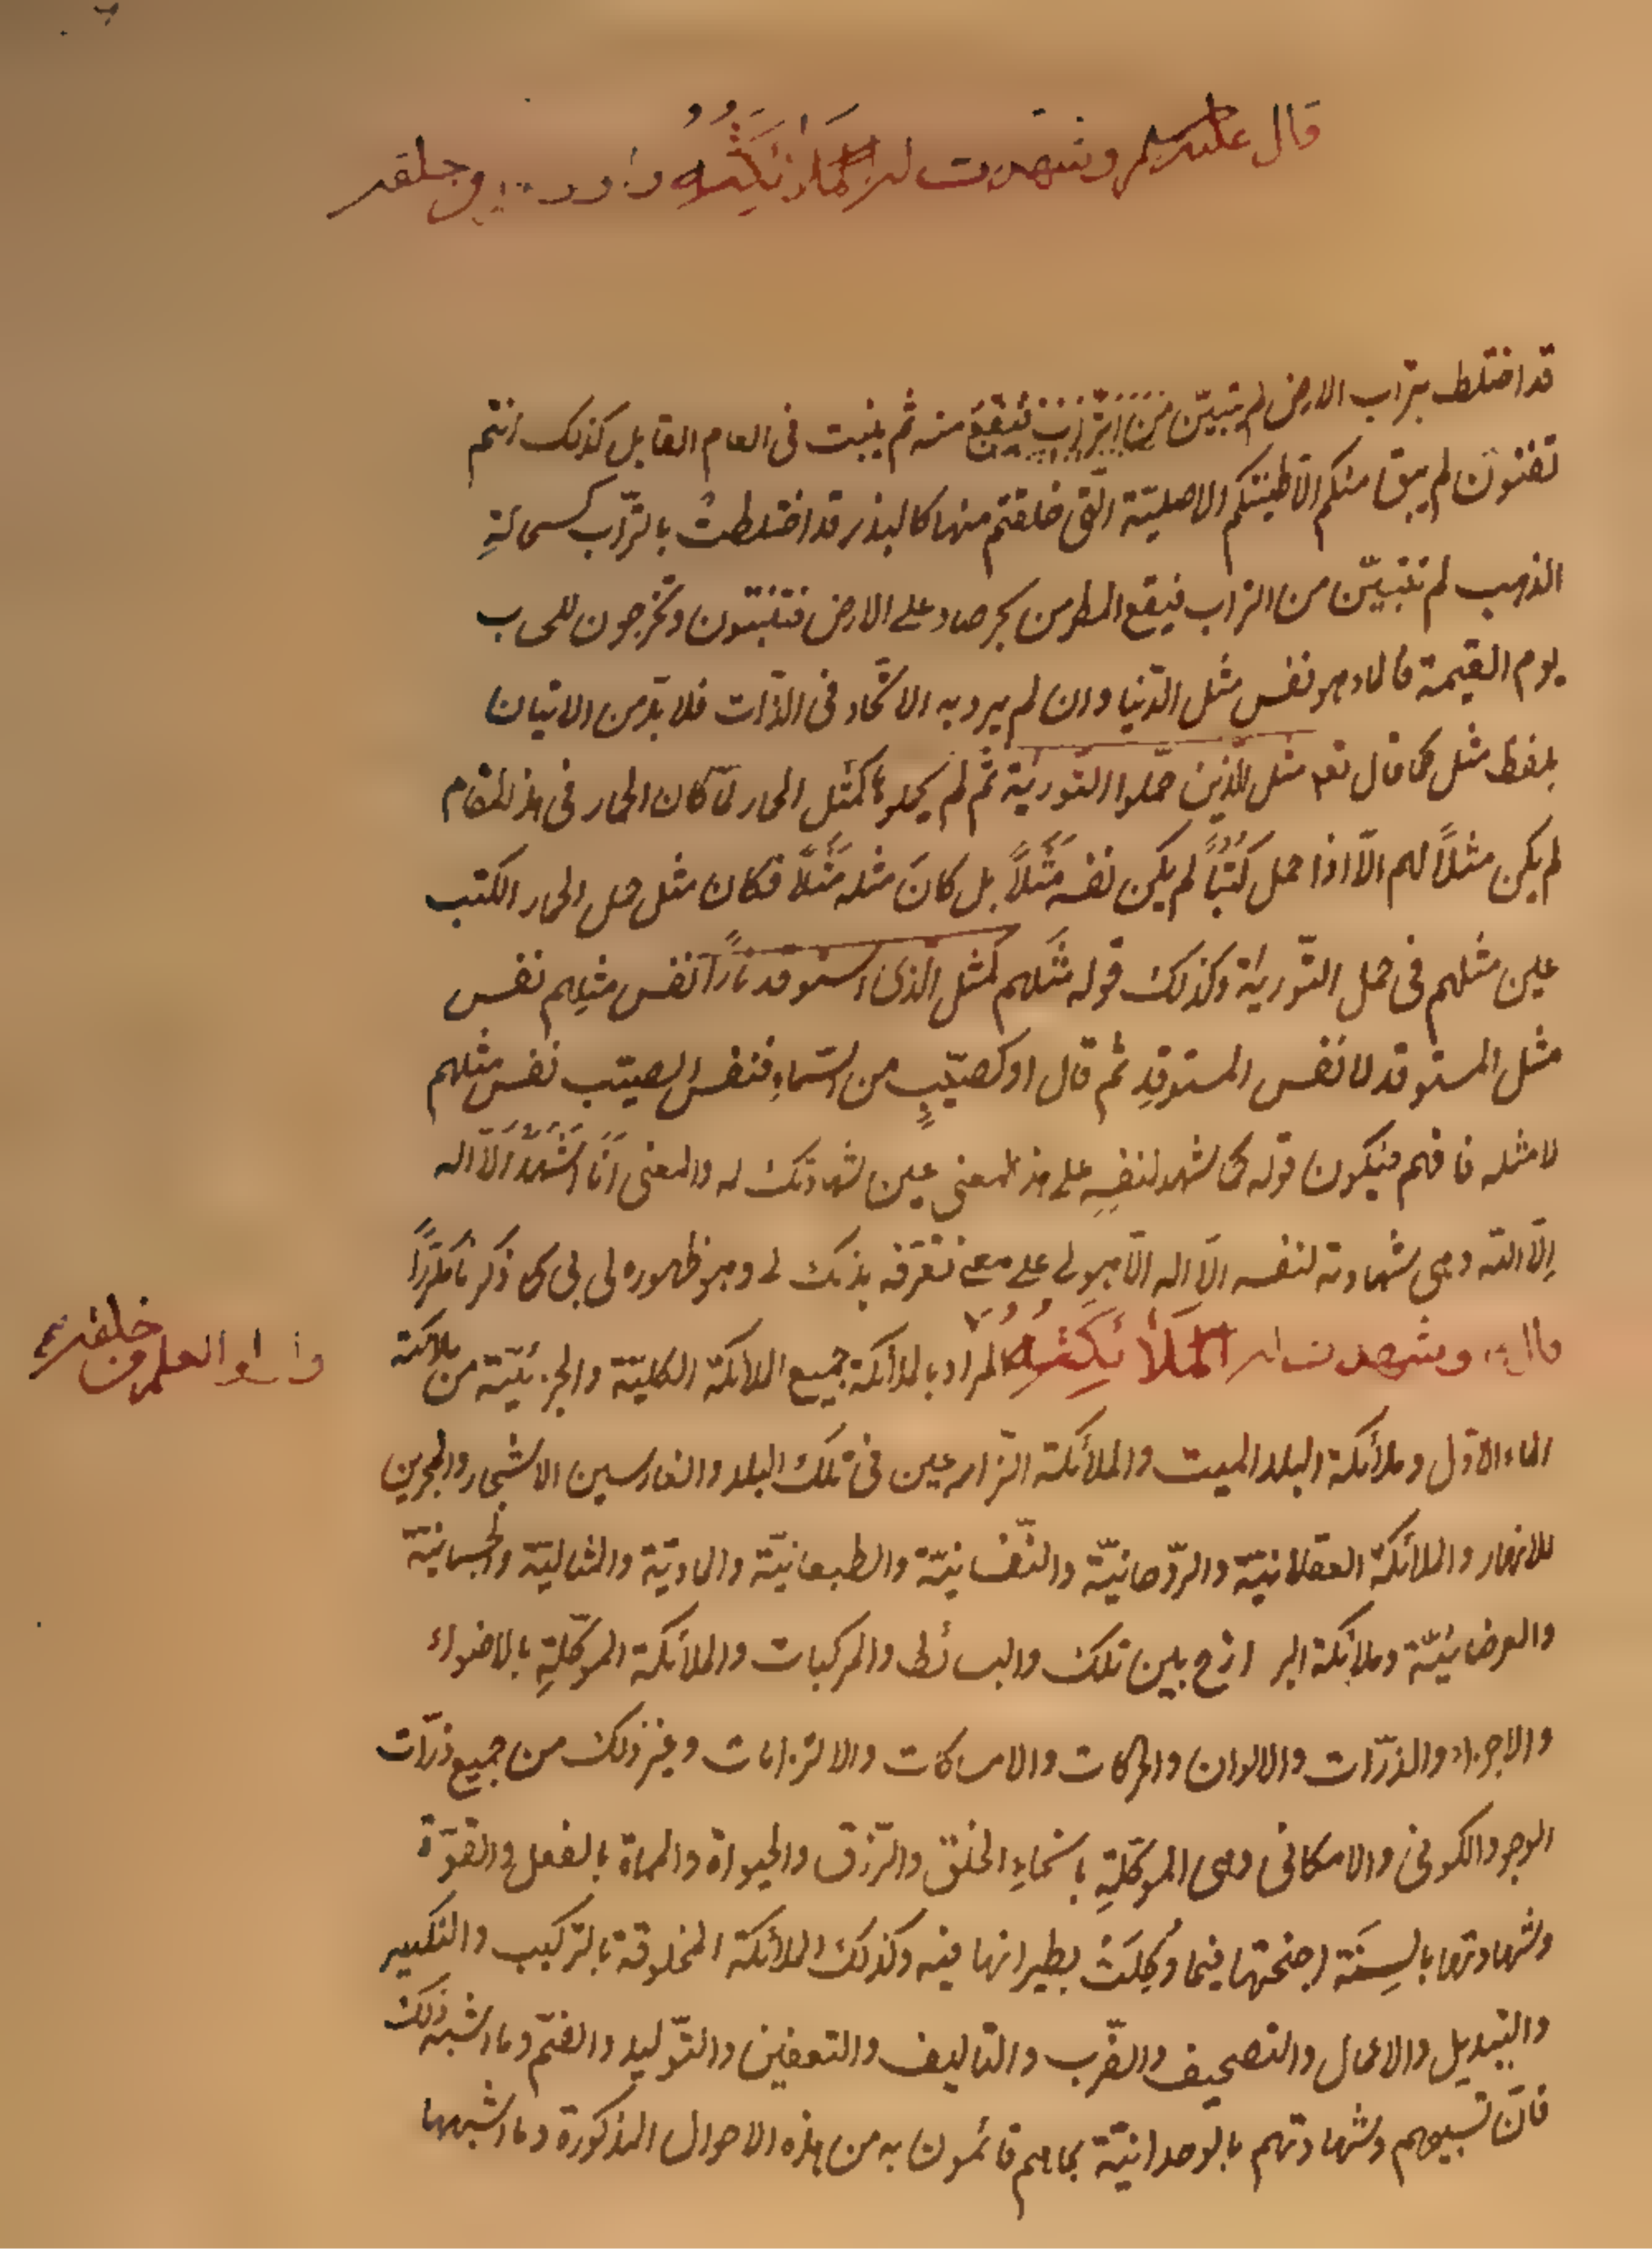 قال عليه السلم وشهدت له ملائكته واولو العلم من خلقه
قد اختلط بتراب الارض لم يتبيّن من التراب فيقع منه ثم ينبت فى العام القابل كذلك انتم
تفنون لم يبق منكم الّا طينتكم الاصليّة الّتى خلقتم منها كالبذر قد اختلطت بالتّراب كسحالة
الذهب لم تتبيّن من التراب فيقع المطر من بحر صاد على الارض فتنبتون وتخرجون للحساب
يوم القيمة فالماء هو نفس مثل الدّنيا وان لم يرد به الاتّحاد فى الذّات فلا بدّ من الاتيان
بلفظ مثل كما قال تعه مثل الّذين حمّلوا التّورية ثمّ لم يحملوها كمثل الحمار لمّا كان الحمار فى هذا المقام
لم يكن مثلاً لهم الّا اذا حمل كُتُباً لم يكن نفسه مَثَلاً بل كانَ مثله مَثَلاً فكان مثل حمل الحمار الكتب
عين مثلهم فى حمل التّورية وكذلك قوله مَثَلهم كمثل الّذى استوقد ناراً نفس مثلِهم نفس
مثل المستوقد لا نفس المستوقِدِ ثم قال او كصيّبٍ من السّماءِ فنفس الصيّب نفس مثلهم
لا مثله فافهم فيكون قوله كما شهد لنفسِه على هذا المعنى عين شهادتك له والمعنى انا اشهد الّا اله
اِلّا اللّه وهى شهادته لنفسه الّا اله الّا هو لى على معنى تعرّفه بذلك لى وهو ظهوره لى بى كما ذكرنا مكرّراً
قال ع وشهدت له الملائكته المراد بالملائكة جميع الملائكة الكليّة والجزئيّة من ملائكة
واولو العلم من خلقه
الماء الاوّل وملائكة البلد الميت والملائكة الزّارعين فى تلك البلد والغارسين الاشجار والمجرين
للانهار والملائكة العقلانيّة والرّوحانيّة والنّفسانيّة والطبعانيّة والماديّة والمثاليّة والجسمانيّة
والعرضانيّة وملائكة البرازخ بين تلك والبسائط والمركبات والملائكة الموكّلةِ بالاضواء
والاجزاء والذرّات والالوان والحركات والامساكات والالتزامات وغير ذلك من جميع ذرّات
الوجود الكونى والامكانى وهى الموكّلةِ بانحاءِ الخلق والرّزق والحيوة والمماة بالفعل والقوّة
وشهادتها بالسِنَة اجنحتها فيما وُكِّلَتْ بطيرانها فيه وكذلك الملائكة المخلوقة بالتركيب والتكسير
والتبديل والاعمال والتصحيف والضّرب والتاليف والتعفين والتّوليد والضّمّ وما اشبه ذلك
فانّ تسبيحهم وشهادتهم بالوحدانيّة بما هم قائمون به من هذه الاحوال المذكورة وما اشبهها